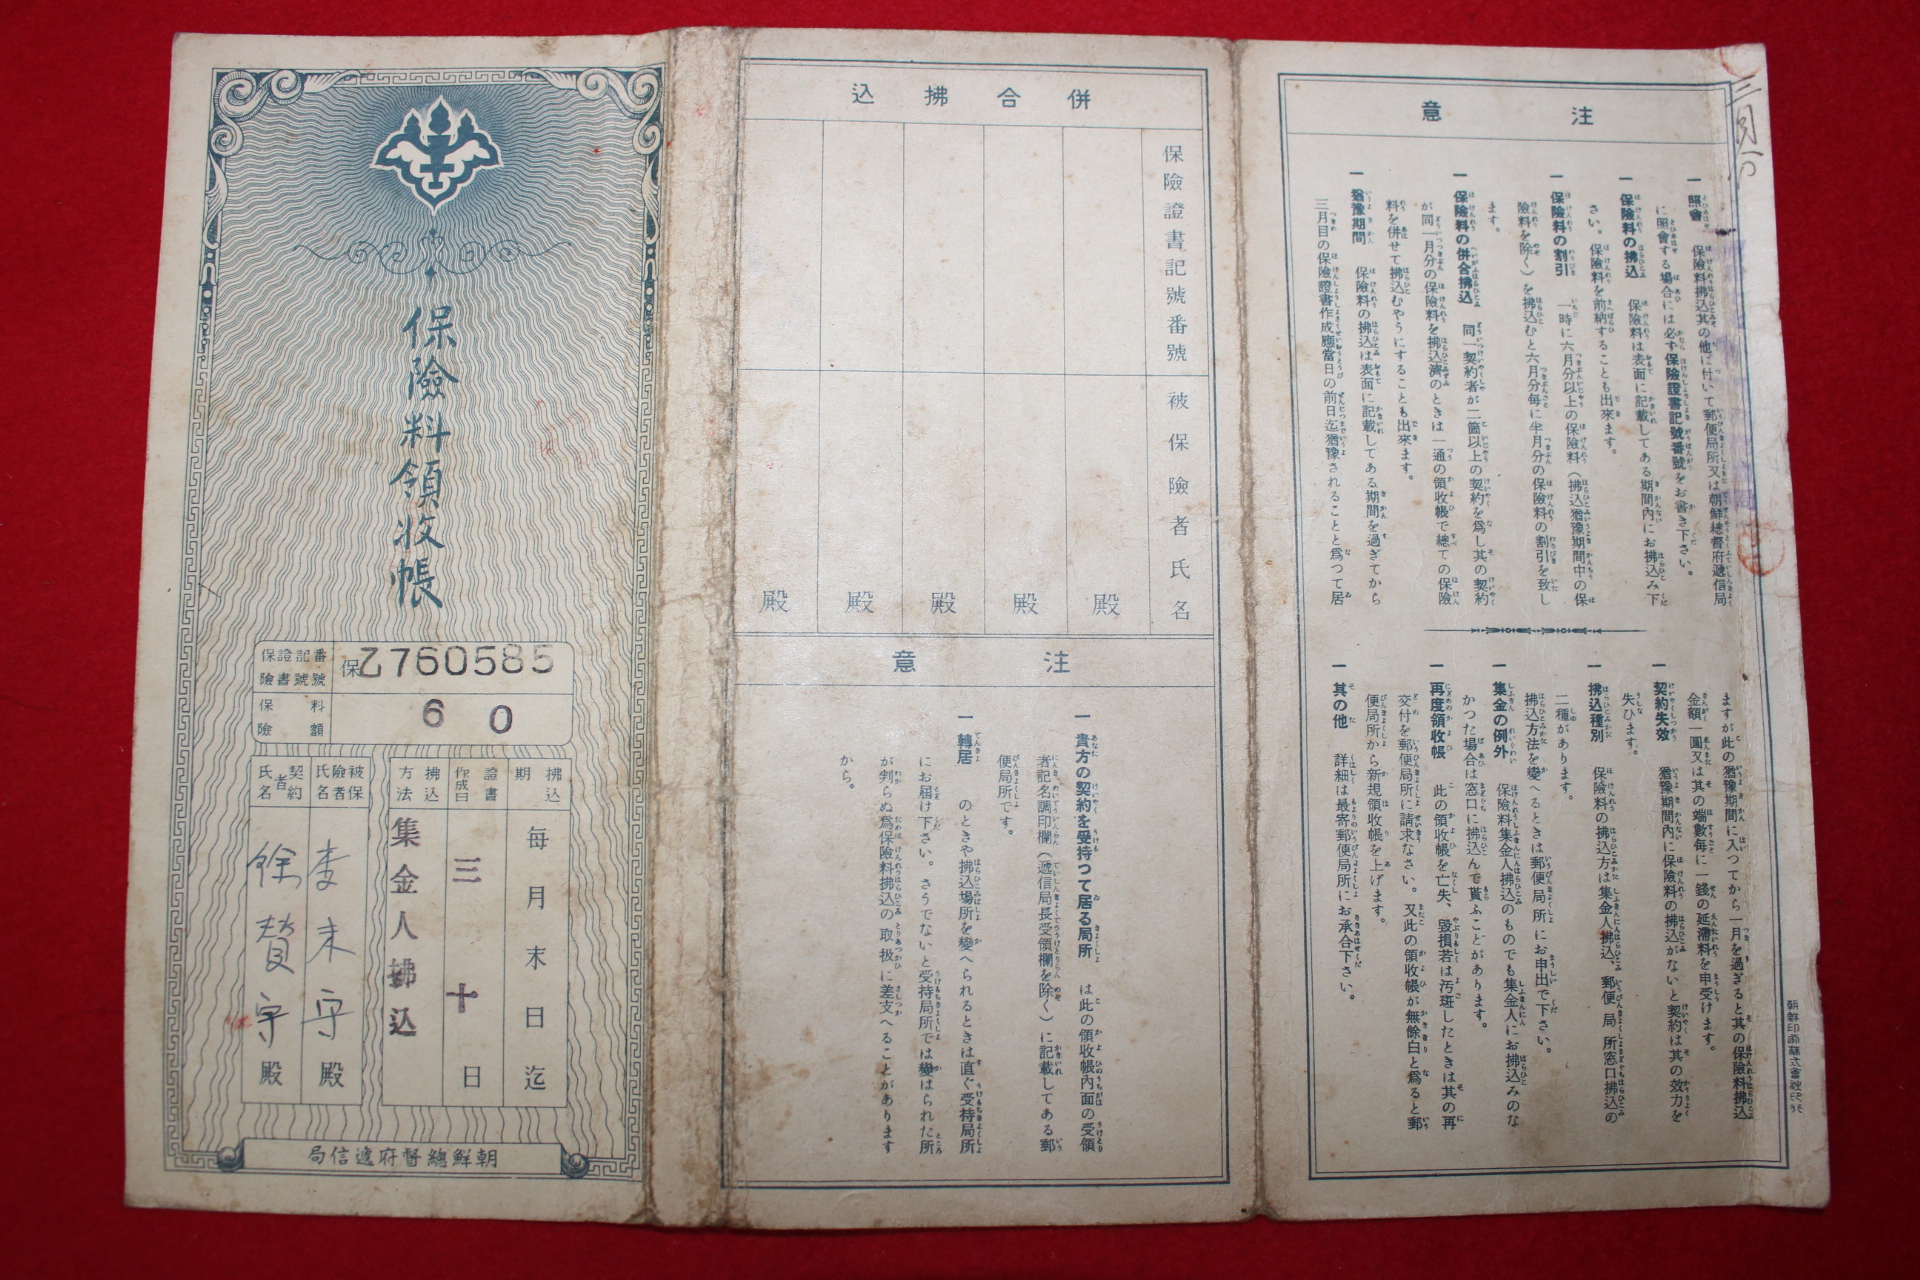 保險料領收帳
保險證書記號番號
保乙760585
保險料額
6 0
拂込期
每月末日迄
證書作成日
三十日
拂込方法
集金人拂込
被保險者氏名
李未守殿
契約者氏名
徐賛守殿
朝鮮總督府遞信局
併合拂込
保險證書記號番號
被保險者氏名
殿
殿
殿
殿
殿
注意
一 貴方の契約を受持つて居る局所 は此の領收帳內面の受領
者記名調印欄(遞信局長受領欄を除く)に記載してある郵
便局所です。
一 轉居 のときや拂込場所を變へられるときは直ぐ受持局所
にお屆け下さい。さうでないと受持局所では變はられた所
が判らぬ爲保險料拂込の取扱に差支へることがあります
から。
注意
一 照會 保險料拂込其の他に付いて郵便局所又は朝鮮總督府遞信局
に照會する場合には必ず保險證書記號番號をお書き下さい。
一 保險料の拂込 保險料は表面に記載してある期間內にお拂込み下
さい。保險料を前納することも出來ます。
一 保險料の割引 一時に六月分以上の保險料(拂込猶豫期間中の保
險料を除く)を拂込むと六月分每に半月分の保險料の割引を致し
ます。
一 保險料の併合拂込 同一契約者が二箇以上の契約を爲し其の契約
が同一月分の保險料を拂込濟のときは一通の領收帳で總ての保險
料を併せて拂込むやうにすることも出來ます。
一 猶豫期間 保險料の拂込は表面に記載してある期間を過ぎてから
三月目の保險證書作成應當日の前日迄猶豫されることと爲つて居
ますが此の猶豫期間に入つてから一月を過ぎると其の保險料拂込
金額一圓又は其の端數每に一錢の延滯料を申受けます。
一 契約失效 猶豫期間內に保險料の拂込がないと契約は其の效力を
失ひます。
一 拂込種別 保險料の拂込方は集金人拂込、郵便局所窓口拂込の
二種があります。
拂込方法を變へるときは郵便局所にお申出で下さい。
一 集金の例外 保險料集金人拂込のものでも集金人にお拂込みのな
かつた場合は窓口に拂込んで貰ふことがあります。
一 再度領收帳 此の領收帳を亡失、毀損若は汚斑したときは其の再
交付を郵便局所に請求なさい。又此の領收帳が無餘白と爲ると郵
便局所から新規領收帳を上げます。
一 其の他 詳細は最寄郵便局所にお承合下さい。
三月分